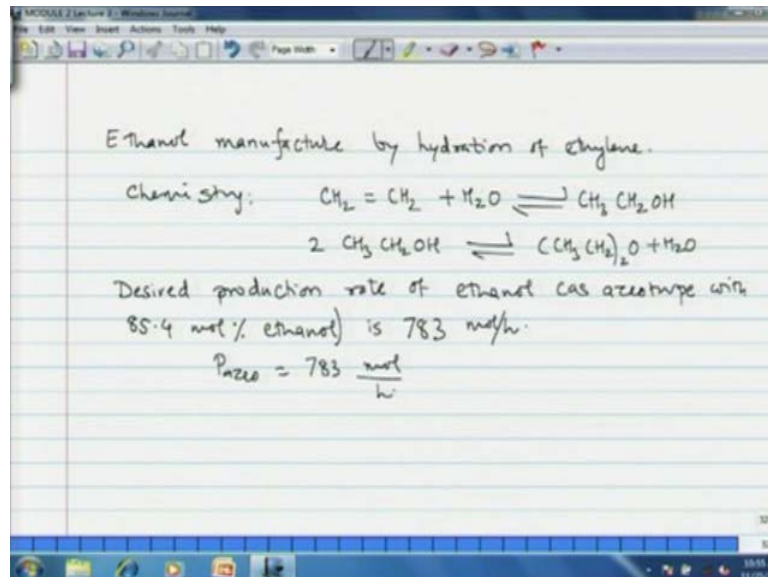 MODULE 2 Lecture 2 - Windows Journal
File Edit View Insert Actions Tools Help
Page Width
Ethanol manufacture by hydration of ethylene.
Chemistry: CH₂ = CH₂ + H₂O ⇌ CH₃ CH₂ OH
2 CH₃ CH₂ OH ⇌ (CH₃ CH₂)₂ O + H₂O
Desired production rate of ethanol (as azeotrope with
85.4 mol % ethanol) is 783 mol/h.
P_azeo = 783 mol
h
10:55